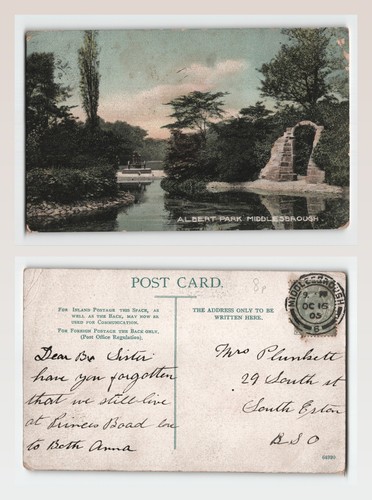 ALBERT PARK MIDDLESBROUGH
POST CARD.
FOR INLAND POSTAGE THE SPACE, AS
WELL AS THE BACK, MAY NOW BE
USED FOR COMMUNICATION.
FOR FOREIGN POSTAGE THE BACK ONLY.
(Post Office Regulation).
THE ADDRESS ONLY TO BE
WRITTEN HERE.
MIDDLESBROUGH
OC 15
03
6
Dear Sister
have you forgotten
that we still live
at Princes Road love
to Both Anna
Mrs Plunkett
29 South st
South Eston
BSO